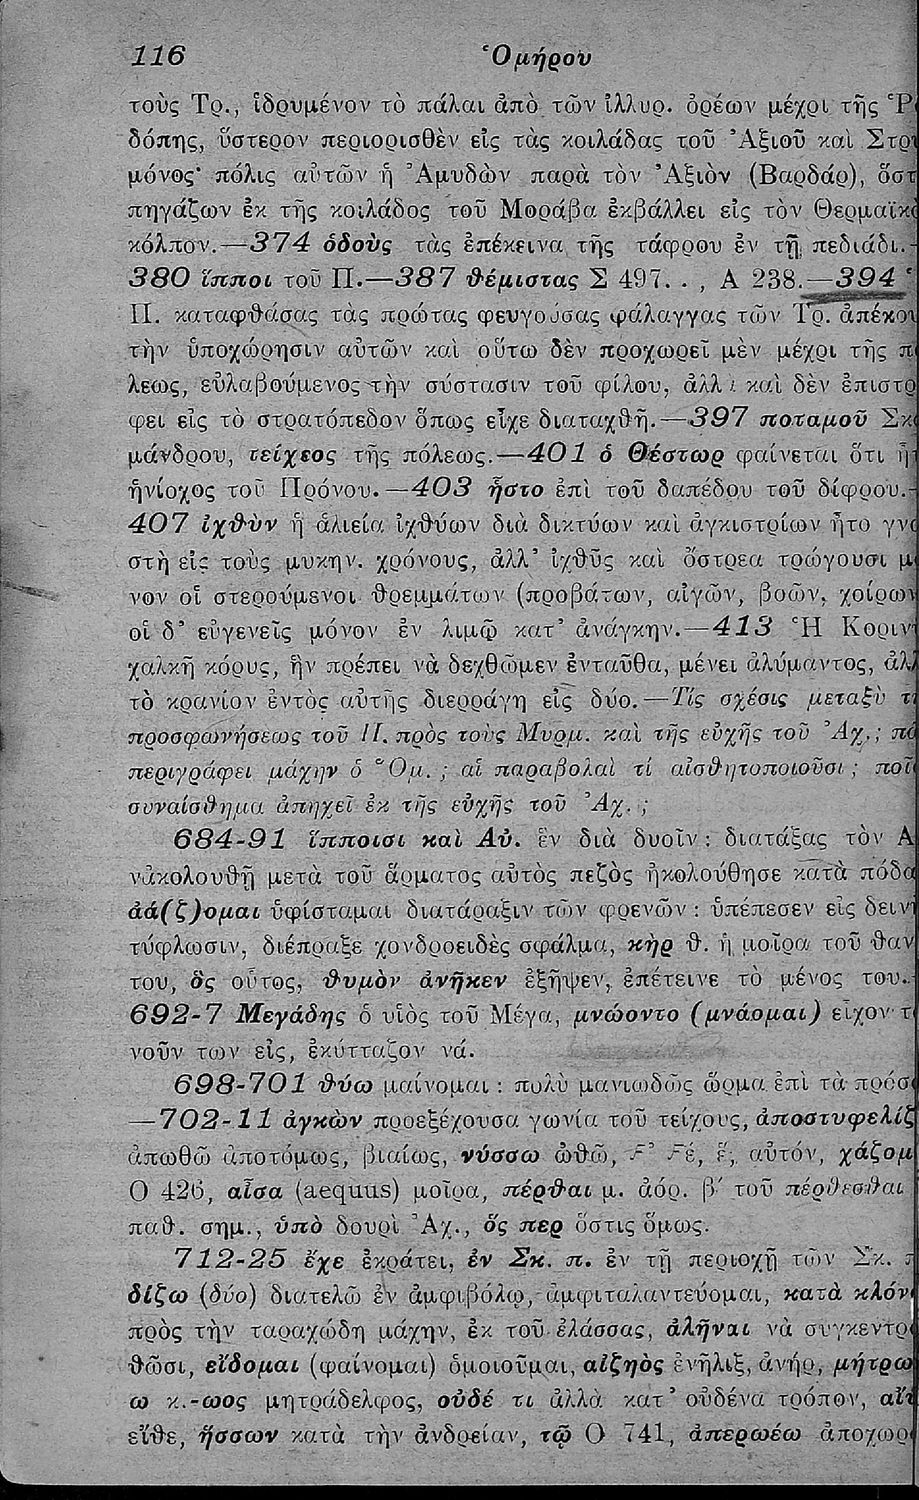 116 Ὁμήρου
τοὺς Τρ., ἱδρυμένον τὸ πάλαι ἀπὸ τῶν ἰλλυρ. ὀρέων μέχρι τῆς Ῥ
δόπης, ὕστερον περιορισθὲν εἰς τὰς κοιλάδας τοῦ Ἀξιοῦ καὶ Στρ
μόνος· πόλις αὐτῶν ἡ Ἀμυδὼν παρὰ τὸν Ἀξιὸν (Βαρδάρ), ὅστ
πηγάζων ἐκ τῆς κοιλάδος τοῦ Μοράβα ἐκβάλλει εἰς τὸν Θερμαϊκ
κόλπον.—374 ὁδοὺς τὰς ἐπέκεινα τῆς τάφρου ἐν τῇ πεδιάδι.-
380 ἵπποι τοῦ Π.—387 θέμιστας Σ 497. . , Α 238.—394
Π. καταφθάσας τὰς πρώτας φευγούσας φάλαγγας τῶν Τρ. ἀπέκο
τὴν ὑποχώρησιν αὐτῶν καὶ οὕτω δὲν προχωρεῖ μὲν μέχρι τῆς π
λεως, εὐλαβούμενος τὴν σύστασιν τοῦ φίλου, ἀλλὰ καὶ δὲν ἐπιστρ
φει εἰς τὸ στρατόπεδον ὅπως εἶχε διαταχθῆ.—397 ποταμοῦ Σκ
μάνδρου, τείχεος τῆς πόλεως.—401 ὁ Θέστωρ φαίνεται ὅτι ἦ
ἡνίοχος τοῦ Πρόνου.—403 ἧστο ἐπὶ τοῦ δαπέδου τοῦ δίφρου.-
407 ἰχθὺν ἡ ἁλιεία ἰχθύων διὰ δικτύων καὶ ἀγκιστρίων ἦτο γν
στὴ εἰς τοὺς μυκην. χρόνους, ἀλλ' ἰχθῦς καὶ ὄστρεα τρώγουσι μ
νον οἱ στερούμενοι θρεμμάτων (προβάτων, αἰγῶν, βοῶν, χοίρων
οἱ δ' εὐγενεῖς μόνον ἐν λιμῷ κατ' ἀνάγκην.—413 Ἡ Κοριν
χαλκῆ κόρυς, ἣν πρέπει νὰ δεχθῶμεν ἐνταῦθα, μένει ἀλύμαντος, ἀλ
τὸ κρανίον ἐντὸς αὐτῆς διερράγη εἰς δύο.—Τίς σχέσις μεταξὺ τ
προσφωνήσεως τοῦ Π. πρὸς τοὺς Μυρμ. καὶ τῆς εὐχῆς τοῦ Ἀχ.; π
περιγράφει μάχην ὁ Ὅμ.; αἱ παραβολαὶ τί αἰσθητοποιοῦσι; ποῖ
συναίσθημα ἀπηχεῖ ἐκ τῆς εὐχῆς τοῦ Ἀχ.;
684-91 ἵπποισι καὶ Αὐ. ἓν διὰ δυοῖν: διατάξας τὸν Α
νἀκολουθῇ μετὰ τοῦ ἅρματος αὐτὸς πεζὸς ἠκολούθησε κατὰ πόδα
ἀά(ζ)ομαι ὑφίσταμαι διατάραξιν τῶν φρενῶν: ὑπέπεσεν εἰς δειν
τύφλωσιν, διέπραξε χονδροειδὲς σφάλμα, κὴρ θ. ἡ μοῖρα τοῦ θαν
του, ὃς οὗτος, θυμὸν ἀνῆκεν ἐξῆψεν, ἐπέτεινε τὸ μένος του.-
692-7 Μεγάδης ὁ υἱὸς τοῦ Μέγα, μνώοντο (μνάομαι) εἶχον τ
νοῦν των εἰς, ἐκύτταζον νά.
698-701 θύω μαίνομαι: πολὺ μανιωδῶς ὥρμα ἐπὶ τὰ πρόσ
—702-11 ἀγκὼν προεξέχουσα γωνία τοῦ τείχους, ἀποστυφελίζ
ἀπωθῶ ἀποτόμως, βιαίως, νύσσω ὠθῶ, ϝ' ϝέ, ἕ, αὐτόν, χάζομ
Ο 426, αἶσα (aequus) μοῖρα, πέρθαι μ. ἀόρ. β΄ τοῦ πέρθεσθαι
παθ. σημ., ὑπὸ δουρὶ Ἀχ., ὅς περ ὅστις ὅμως.
712-25 ἔχε ἐκράτει, ἐν Σκ. π. ἐν τῇ περιοχῇ τῶν Σκ. π
δίζω (δύο) διατελῶ ἐν ἀμφιβόλῳ, ἀμφιταλαντεύομαι, κατὰ κλόν
πρὸς τὴν ταραχώδη μάχην, ἐκ τοῦ ἐλάσσας, ἀλῆναι νὰ συγκεντρ
θῶσι, εἴδομαι (φαίνομαι) ὁμοιοῦμαι, αἰζηὸς ἐνῆλιξ, ἀνήρ, μήτρω
ω κ.-ωος μητράδελφος, οὐδέ τι ἀλλὰ κατ' οὐδένα τρόπον, αἴ
εἴθε, ἥσσων κατὰ τὴν ἀνδρείαν, τῷ Ο 741, ἀπερωέω ἀποχωρ